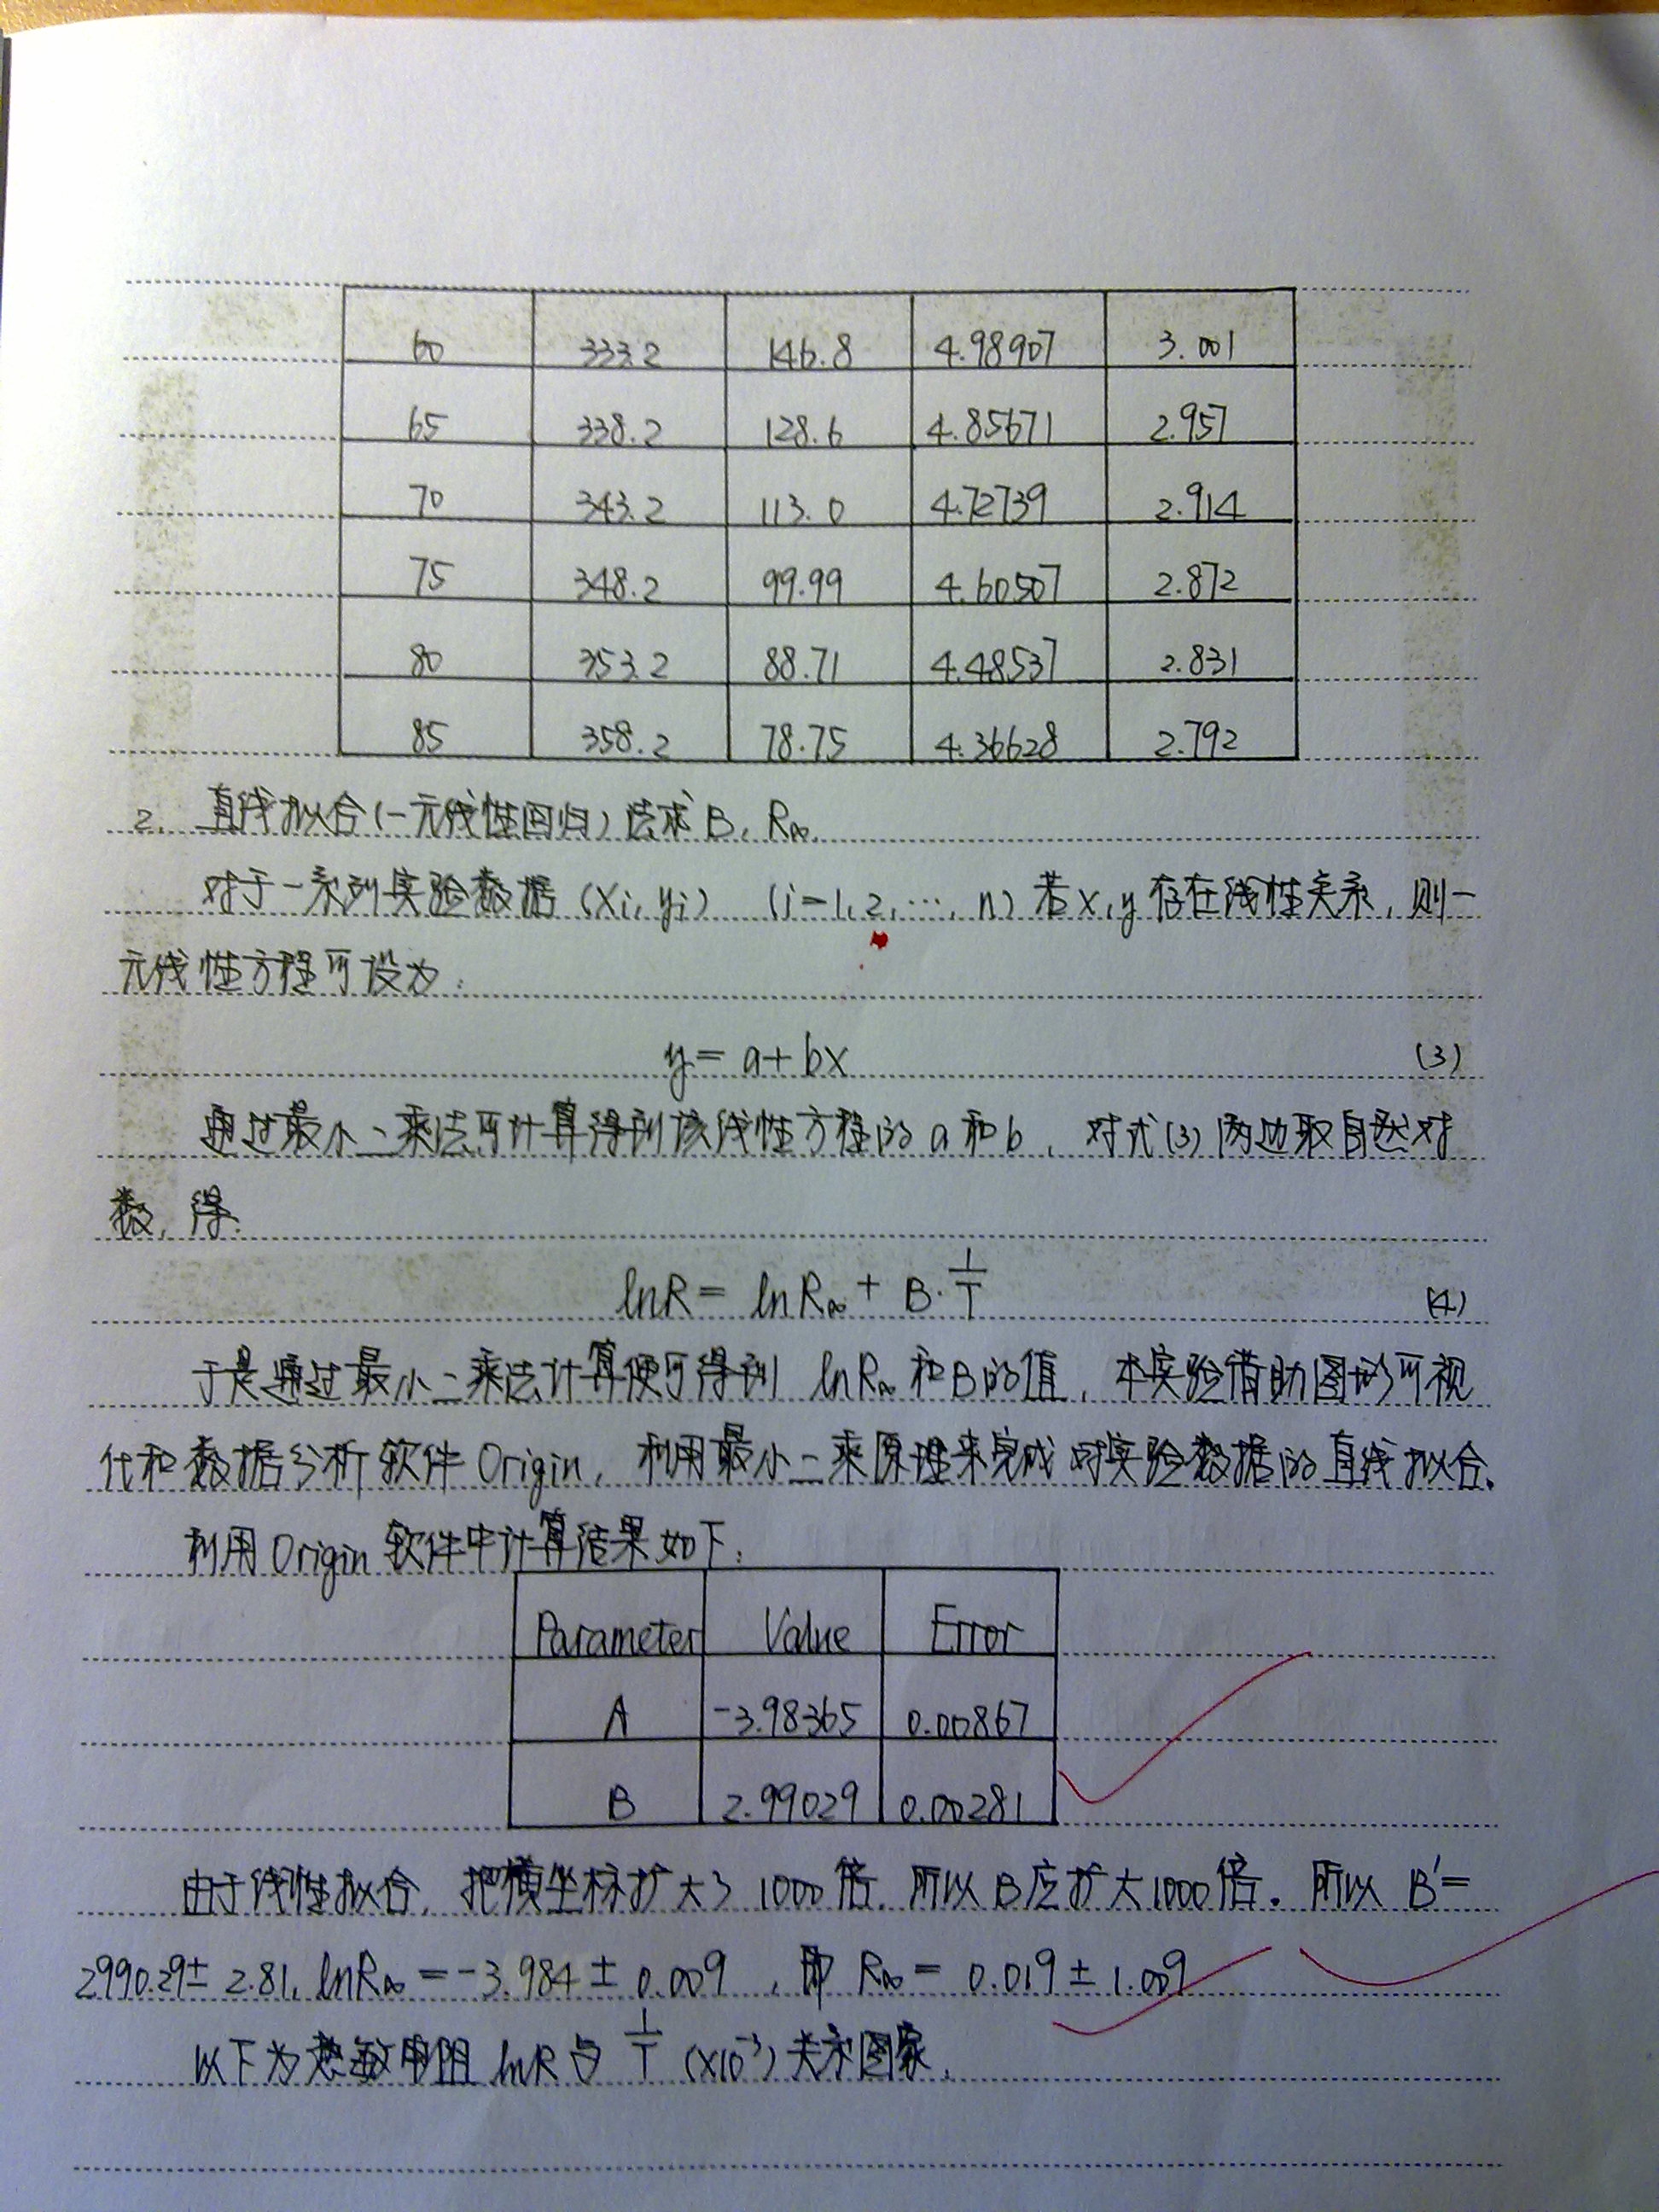 60 333.2 146.8 4.98907 3.001
65 338.2 128.6 4.85671 2.957
70 343.2 113.0 4.72739 2.914
75 348.2 99.99 4.60507 2.872
80 353.2 88.71 4.48537 2.831
85 358.2 78.75 4.36628 2.792
2. 直线拟合(一元线性回归)法求B, R∞.
对于一系列实验数据 (xi, yi) (i=1, 2, ..., n) 若x, y存在线性关系, 则一
元线性方程可设为:
y = a+bx (3)
通过最小二乘法可计算得到该线性方程的a和b, 对式(3)两边取自然对
数, 得:
lnR = lnR∞ + B·1/T (4)
于是通过最小二乘法计算便可得到 lnR∞ 和B的值, 本实验借助图形可视
化和数据分析软件Origin, 利用最小二乘原理来完成对实验数据的直线拟合.
利用Origin软件中计算结果如下:
Parameter Value Error
A -3.98365 0.00867
B 2.99029 0.00281
由于线性拟合, 把横坐标扩大了1000倍. 所以B应扩大1000倍. 所以 B'=
2990.29± 2.81, lnR∞ = -3.984 ± 0.009, 即 R∞ = 0.019 ± 1.009
以下为热敏电阻 lnR 与 1/T (×10⁻³) 关系图象.